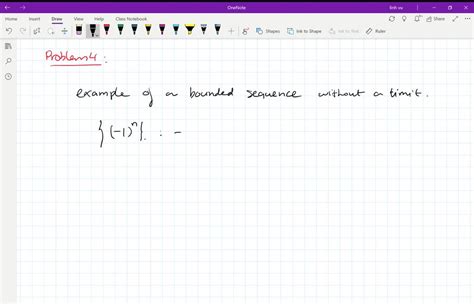 OneNote
linh vu
File Home Insert Draw View Help Class Notebook
Shapes Ink to Shape Ink to Text
Problem 4 :
example of a bounded sequence without a limit.
{(-1)^n} : -